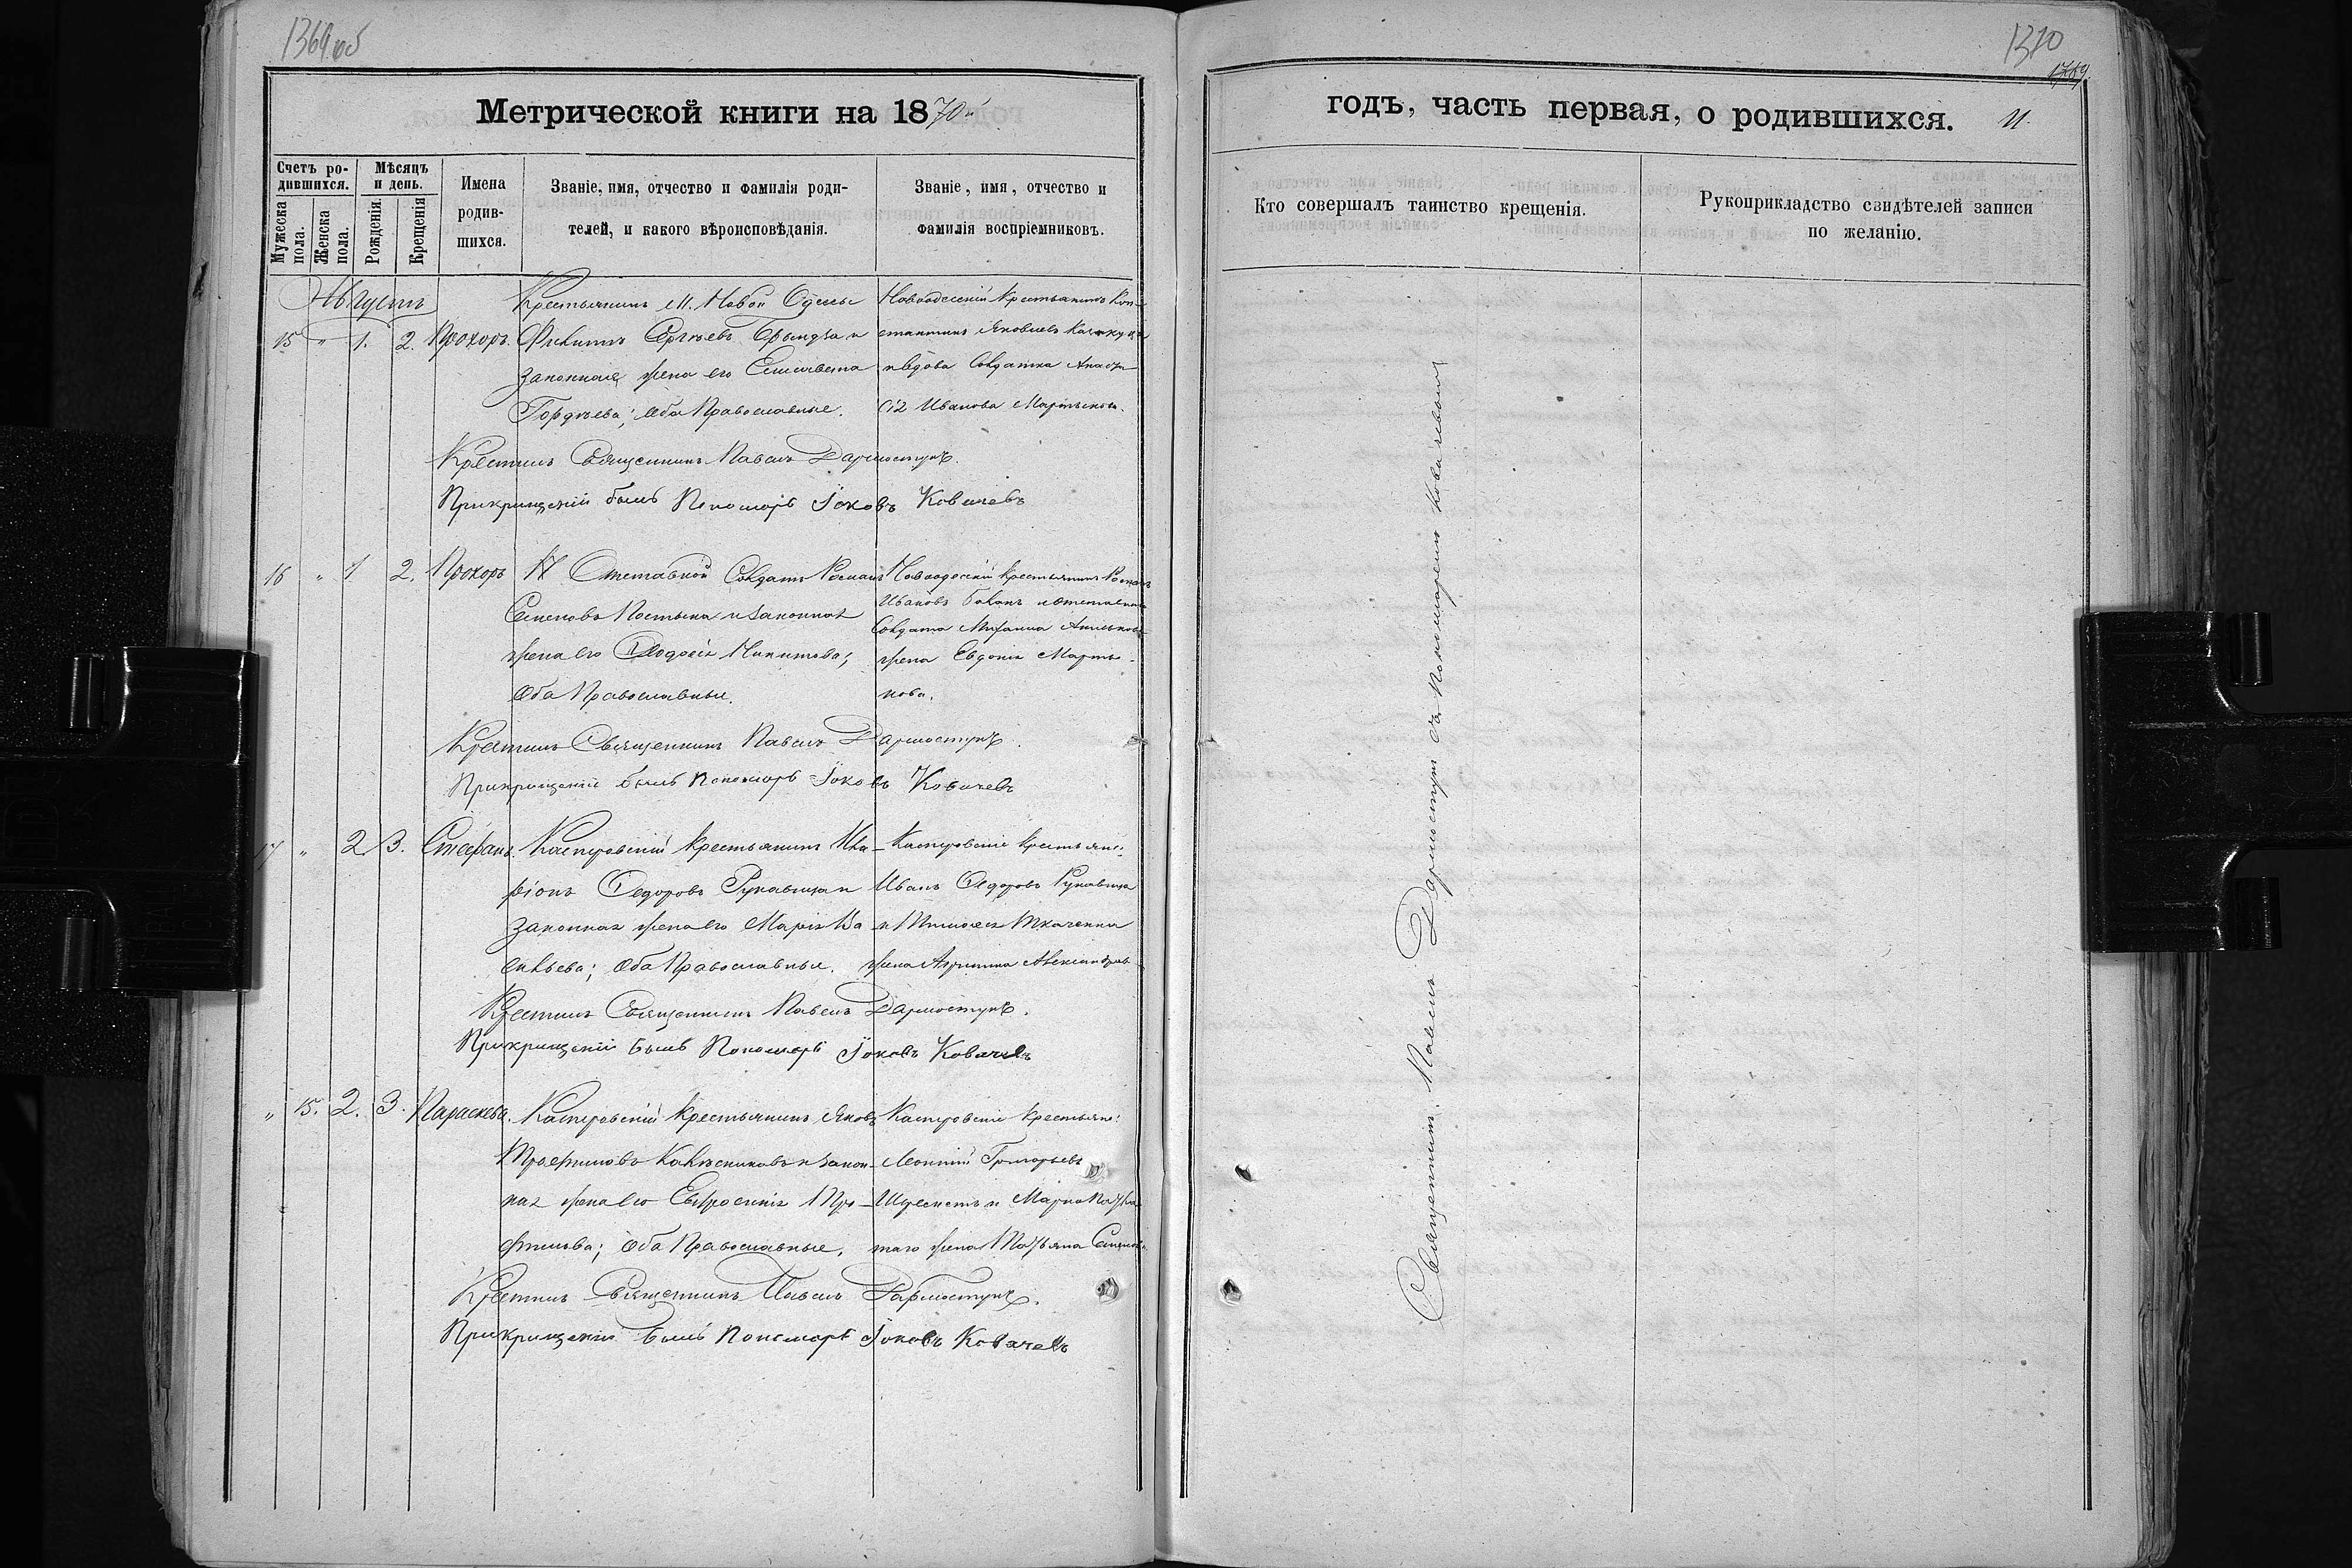 1369 об
Метрической книги на 1870й
Счетъ родившихся.
Мѣсяцъ и день.
Мужеска пола.
Женска пола.
Рожденія.
Крещенія
Имена родившихся.
Званіе, имя, отчество и фамилія родителей, и какого вѣроисповѣданія.
Званіе, имя, отчество и фамилія воспріемниковъ.
Августъ
15 " 1. 2. Прохоръ.
Крестьянинъ М. Новой Одессы
Сергѣевъ и
законная жена его Елисавета
Гордѣева; оба Православные.
Новоодесскій крестьянинъ Кон-
стантинъ Яковлевъ
и вдова Солдатка Анаста-
сія Иванова
Крестилъ Священникъ Павелъ Дармостукъ.
Прикрищеніи былъ Пономарь Іоковъ Ковачевъ
16 " 1 2. Прохоръ
Отставной Солдатъ Романъ
Семеновъ и законная
жена его Ѳеодосія Никитова;
Оба Православные.
Новоодескій крестьянинъ Романъ
Ивановъ и отставнаго
Солдата
жена Евдокія Марты-
нова.
Крестилъ Священникъ Павелъ Дармостукъ.
Прикрищеніи былъ Пономарь Іоковъ Ковачевъ
17 " 2 3. Стефанъ.
Касперовскій крестьянинъ Ила-
ріонъ Ѳедоровъ Рукавица и
законная жена его Марія Ва-
сильева; Оба Православные.
Касперовскіе крестьяне:
Иванъ Ѳедоровъ Рукавица
и Тимоѳея Ткаченка
жена Агрипина Александров
Крестилъ Священникъ Павелъ Дармостукъ.
Прикрищеніи былъ Пономарь Іоковъ Ковачевъ
" 15. 2. 3. Параскева.
Касперовскій крестьянинъ Яковъ
Трофимовъ Колѣсниковъ и закон-
ная жена его Евфросинія Тро-
фимова; Оба Православные.
Касперовскіе крестьяне:
Леонтій Григорьевъ
и Марка
таго жена Татьяна
Крестилъ Священникъ Павелъ Дармостукъ.
Прикрищеніи былъ Пономарь Іоковъ Ковачевъ
1370
годъ, часть первая, о родившихся.
Кто совершалъ таинство крещенія.
Рукоприкладство свидѣтелей записи по желанію.
Священникъ Павелъ Дармостукъ съ Пономаремъ Ковачевымъ